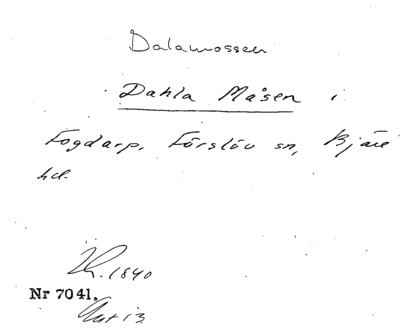 Dalamossen
Dahla Måsen i
Fogdarp, Förslöv sn, Bjäre
hd.
1840
Nr 7041.